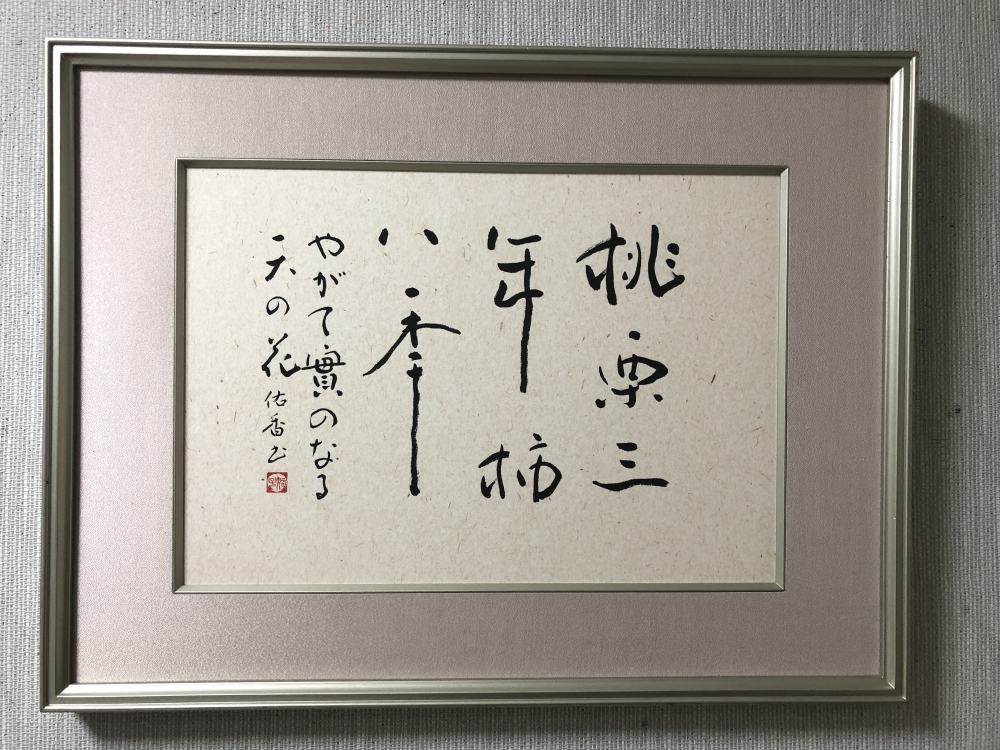 桃栗三
年柿
八季
やがて實のなる
天の花
佑香書